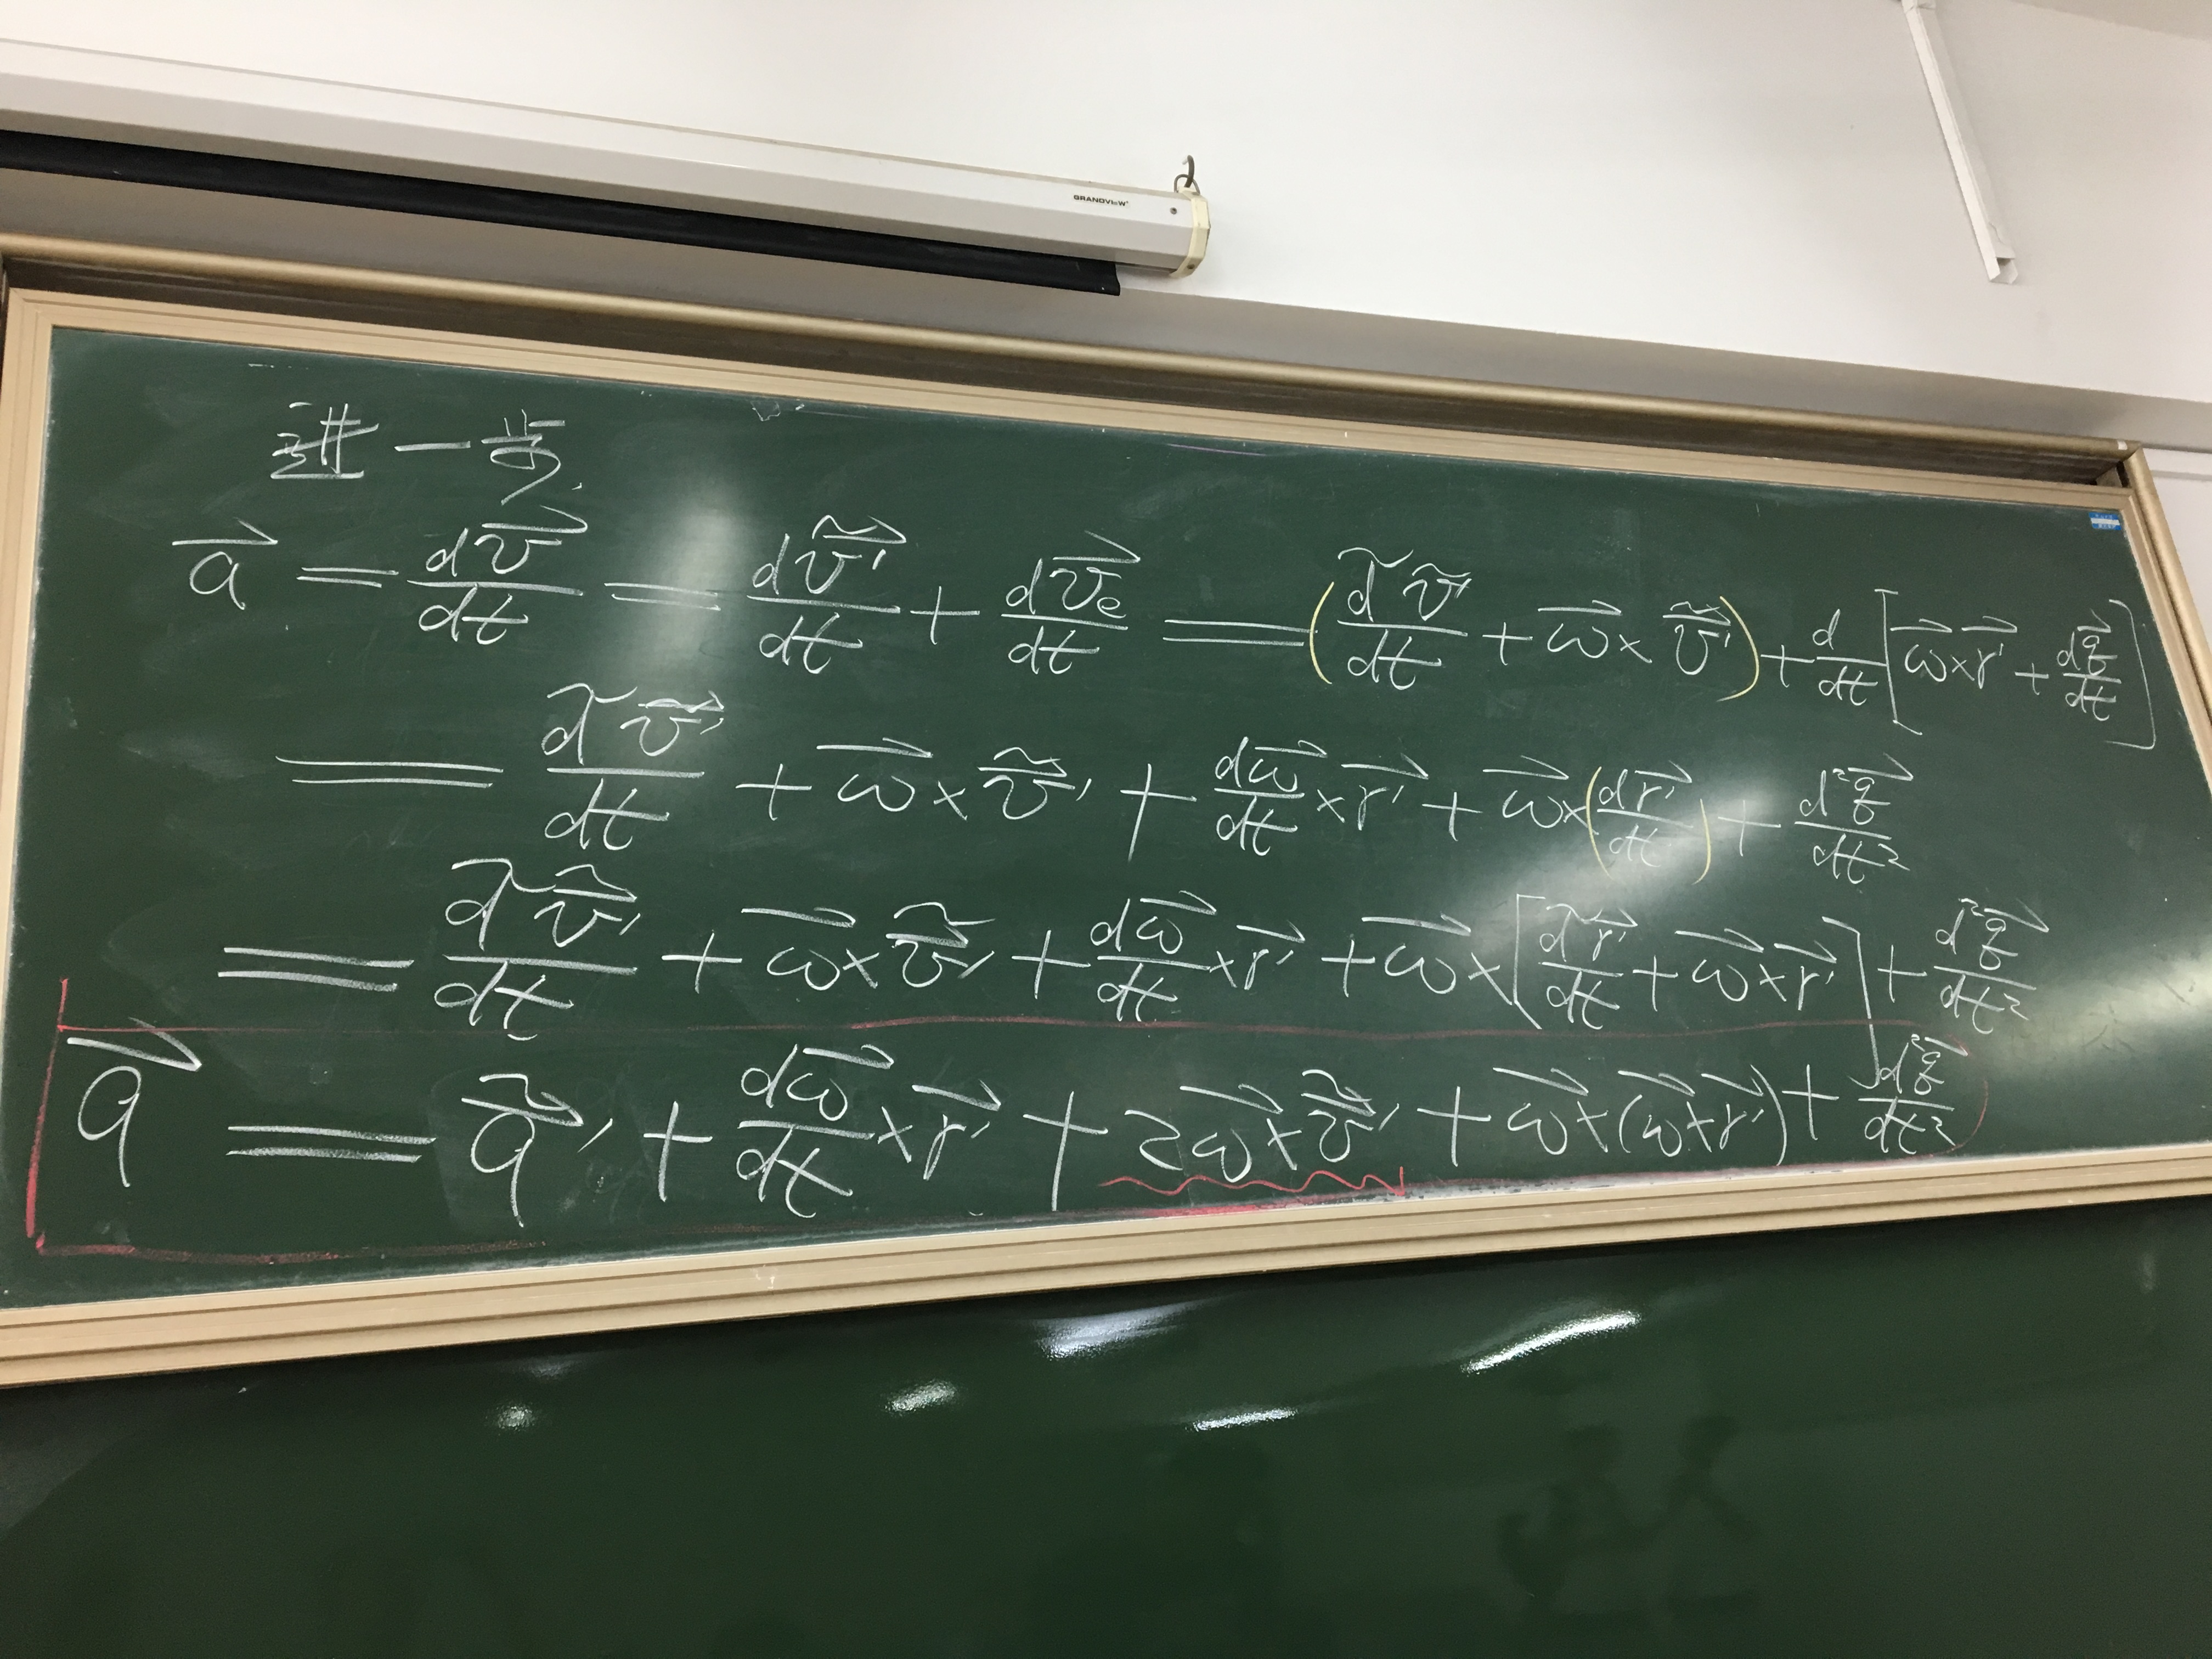 GRANDVIEW
进一步
$\vec{a} = \frac{d\vec{v}}{dt} = \frac{d\tilde{\vec{v}}'}{dt} + \frac{d\vec{v}_e}{dt} = \left(\frac{\tilde{d}\tilde{v}'}{dt} + \vec{\omega} \times \tilde{\vec{v}}'\right) + \frac{d}{dt}\left[\vec{\omega} \times \vec{r}' + \frac{d\vec{q}}{dt}\right]$
$= \frac{\tilde{d}\tilde{\vec{v}}'}{dt} + \vec{\omega} \times \tilde{\vec{v}}' + \frac{d\vec{\omega}}{dt} \times \vec{r}' + \vec{\omega} \times \left(\frac{d\vec{r}'}{dt}\right) + \frac{d^2\vec{q}}{dt^2}$
$= \frac{\tilde{d}\tilde{\vec{v}}'}{dt} + \vec{\omega} \times \tilde{\vec{v}}' + \frac{d\vec{\omega}}{dt} \times \vec{r}' + \vec{\omega} \times \left[\frac{\tilde{d}\vec{r}'}{dt} + \vec{\omega} \times \vec{r}'\right] + \frac{d^2\vec{q}}{dt^2}$
$\vec{a} = \tilde{\vec{a}}' + \frac{d\vec{\omega}}{dt} \times \vec{r}' + 2\vec{\omega} \times \tilde{\vec{v}}' + \vec{\omega} \times (\vec{\omega} \times \vec{r}') + \frac{d^2\vec{q}}{dt^2}$